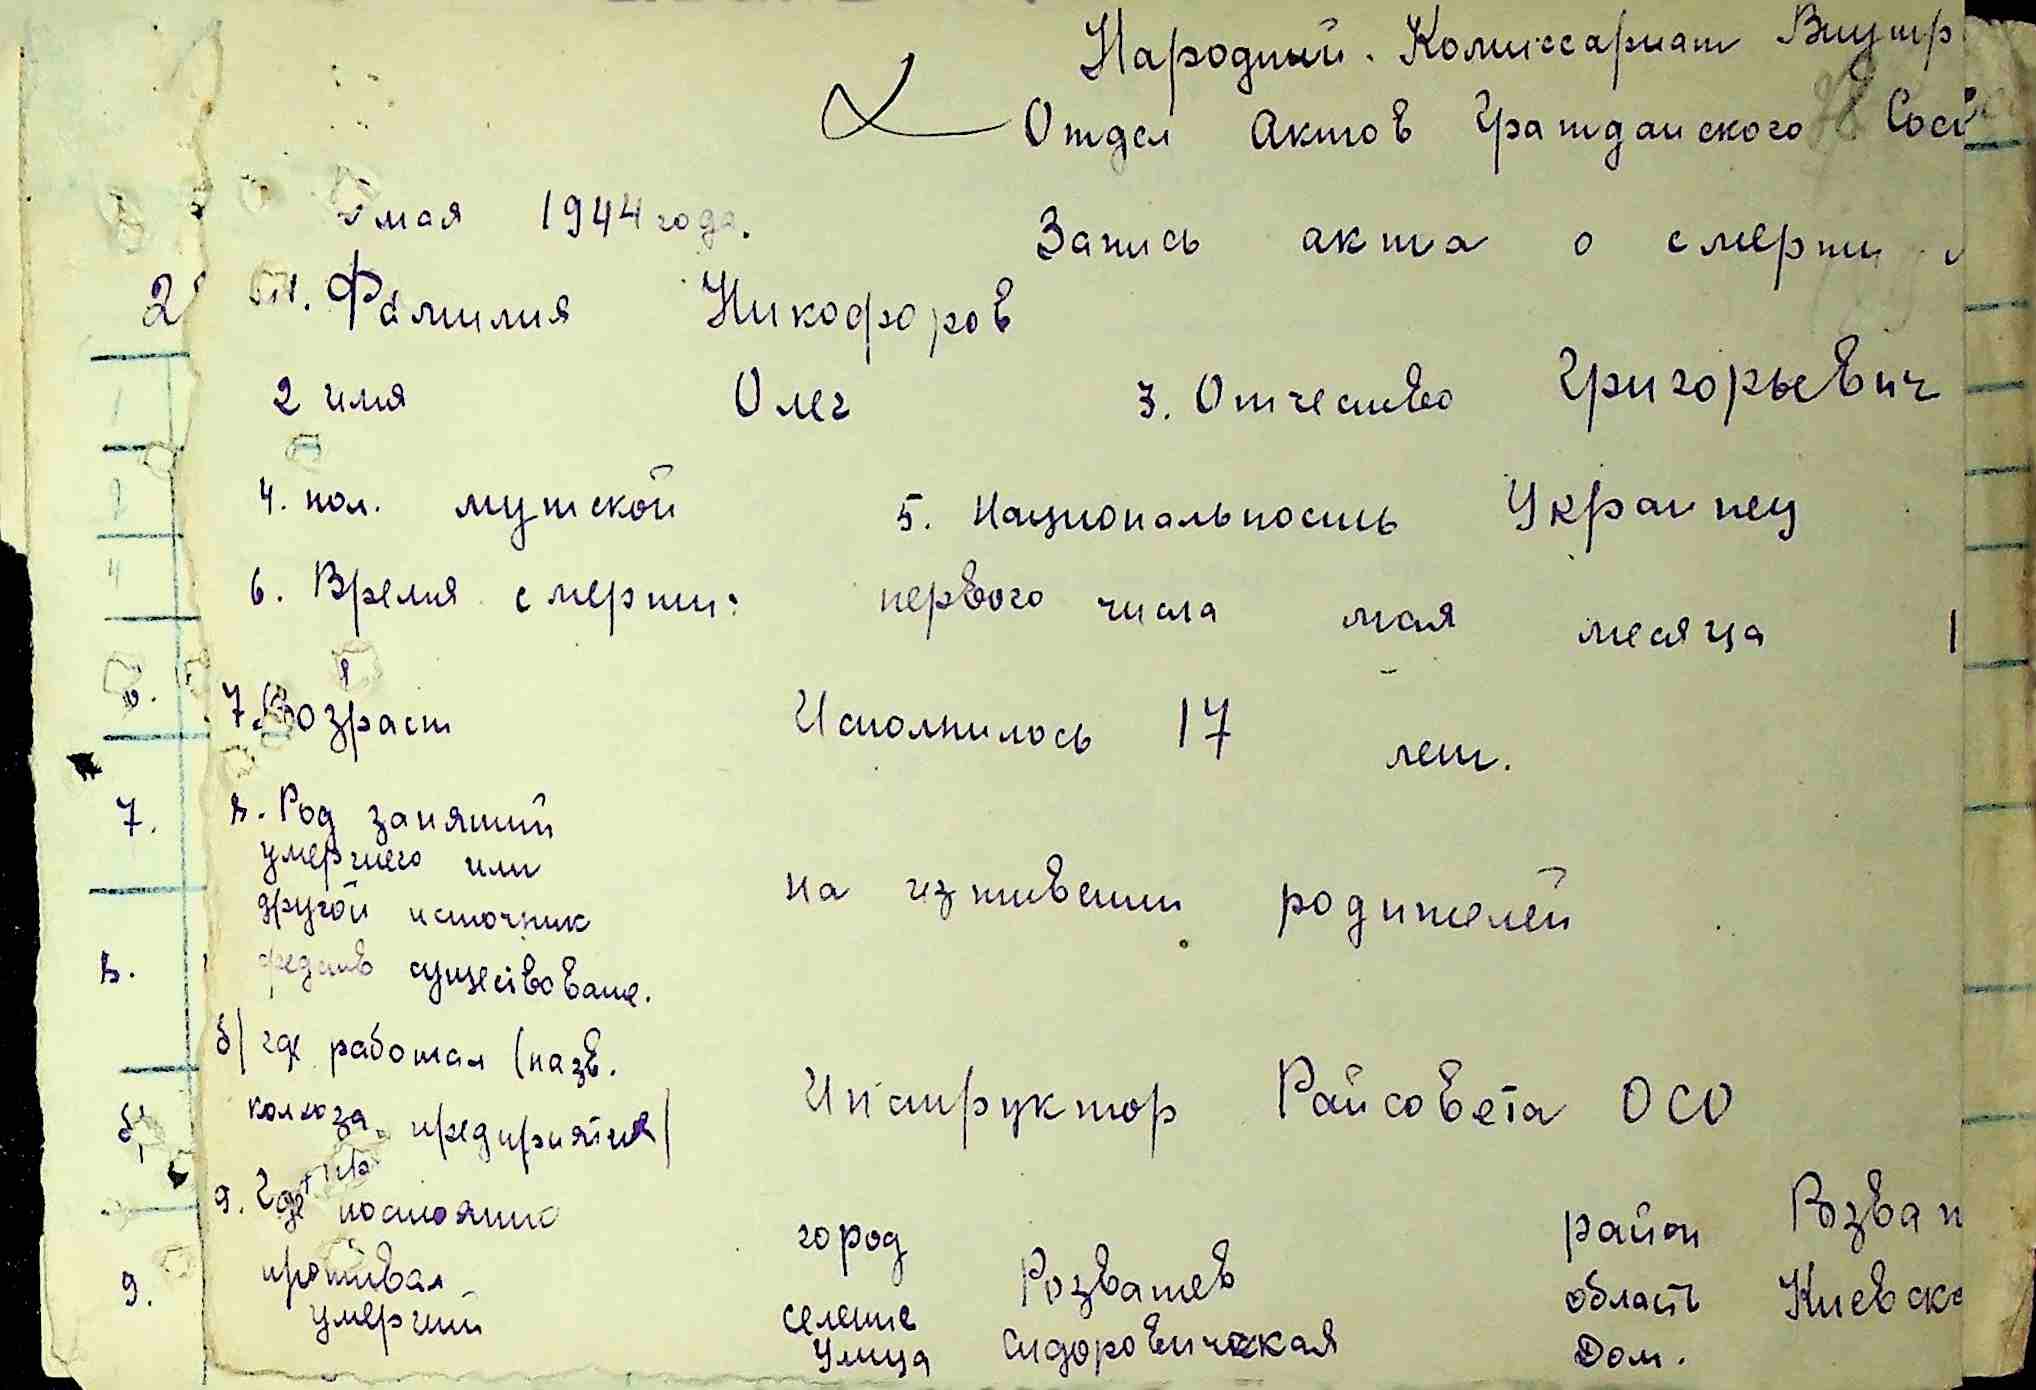 Народный. Комиссариат Внутр
Отдел Актов Гражданского Сост
мая 1944 года.
Запись акта о смерти
1. Фамилия Никофоров
2 имя Олег 3. Отчество Григорьевич
4. пол. мужской 5. Национальность Украинец
6. Время смерти: первого числа мая месяца 1
7. Возраст Исполнилось 17 лет.
8. Род занятий
умершего или
другой источник
средств существоване.
на иживении родителей
б) где работал (назв.
колхоза, предприятие)
Инструктор Райсовета ОСО
9. Где постоянно
проживал
умерший
город район Розваж
селение Розважев область Киевска
улица Сидоровичская Дом.
2
7.
8.
б
9.